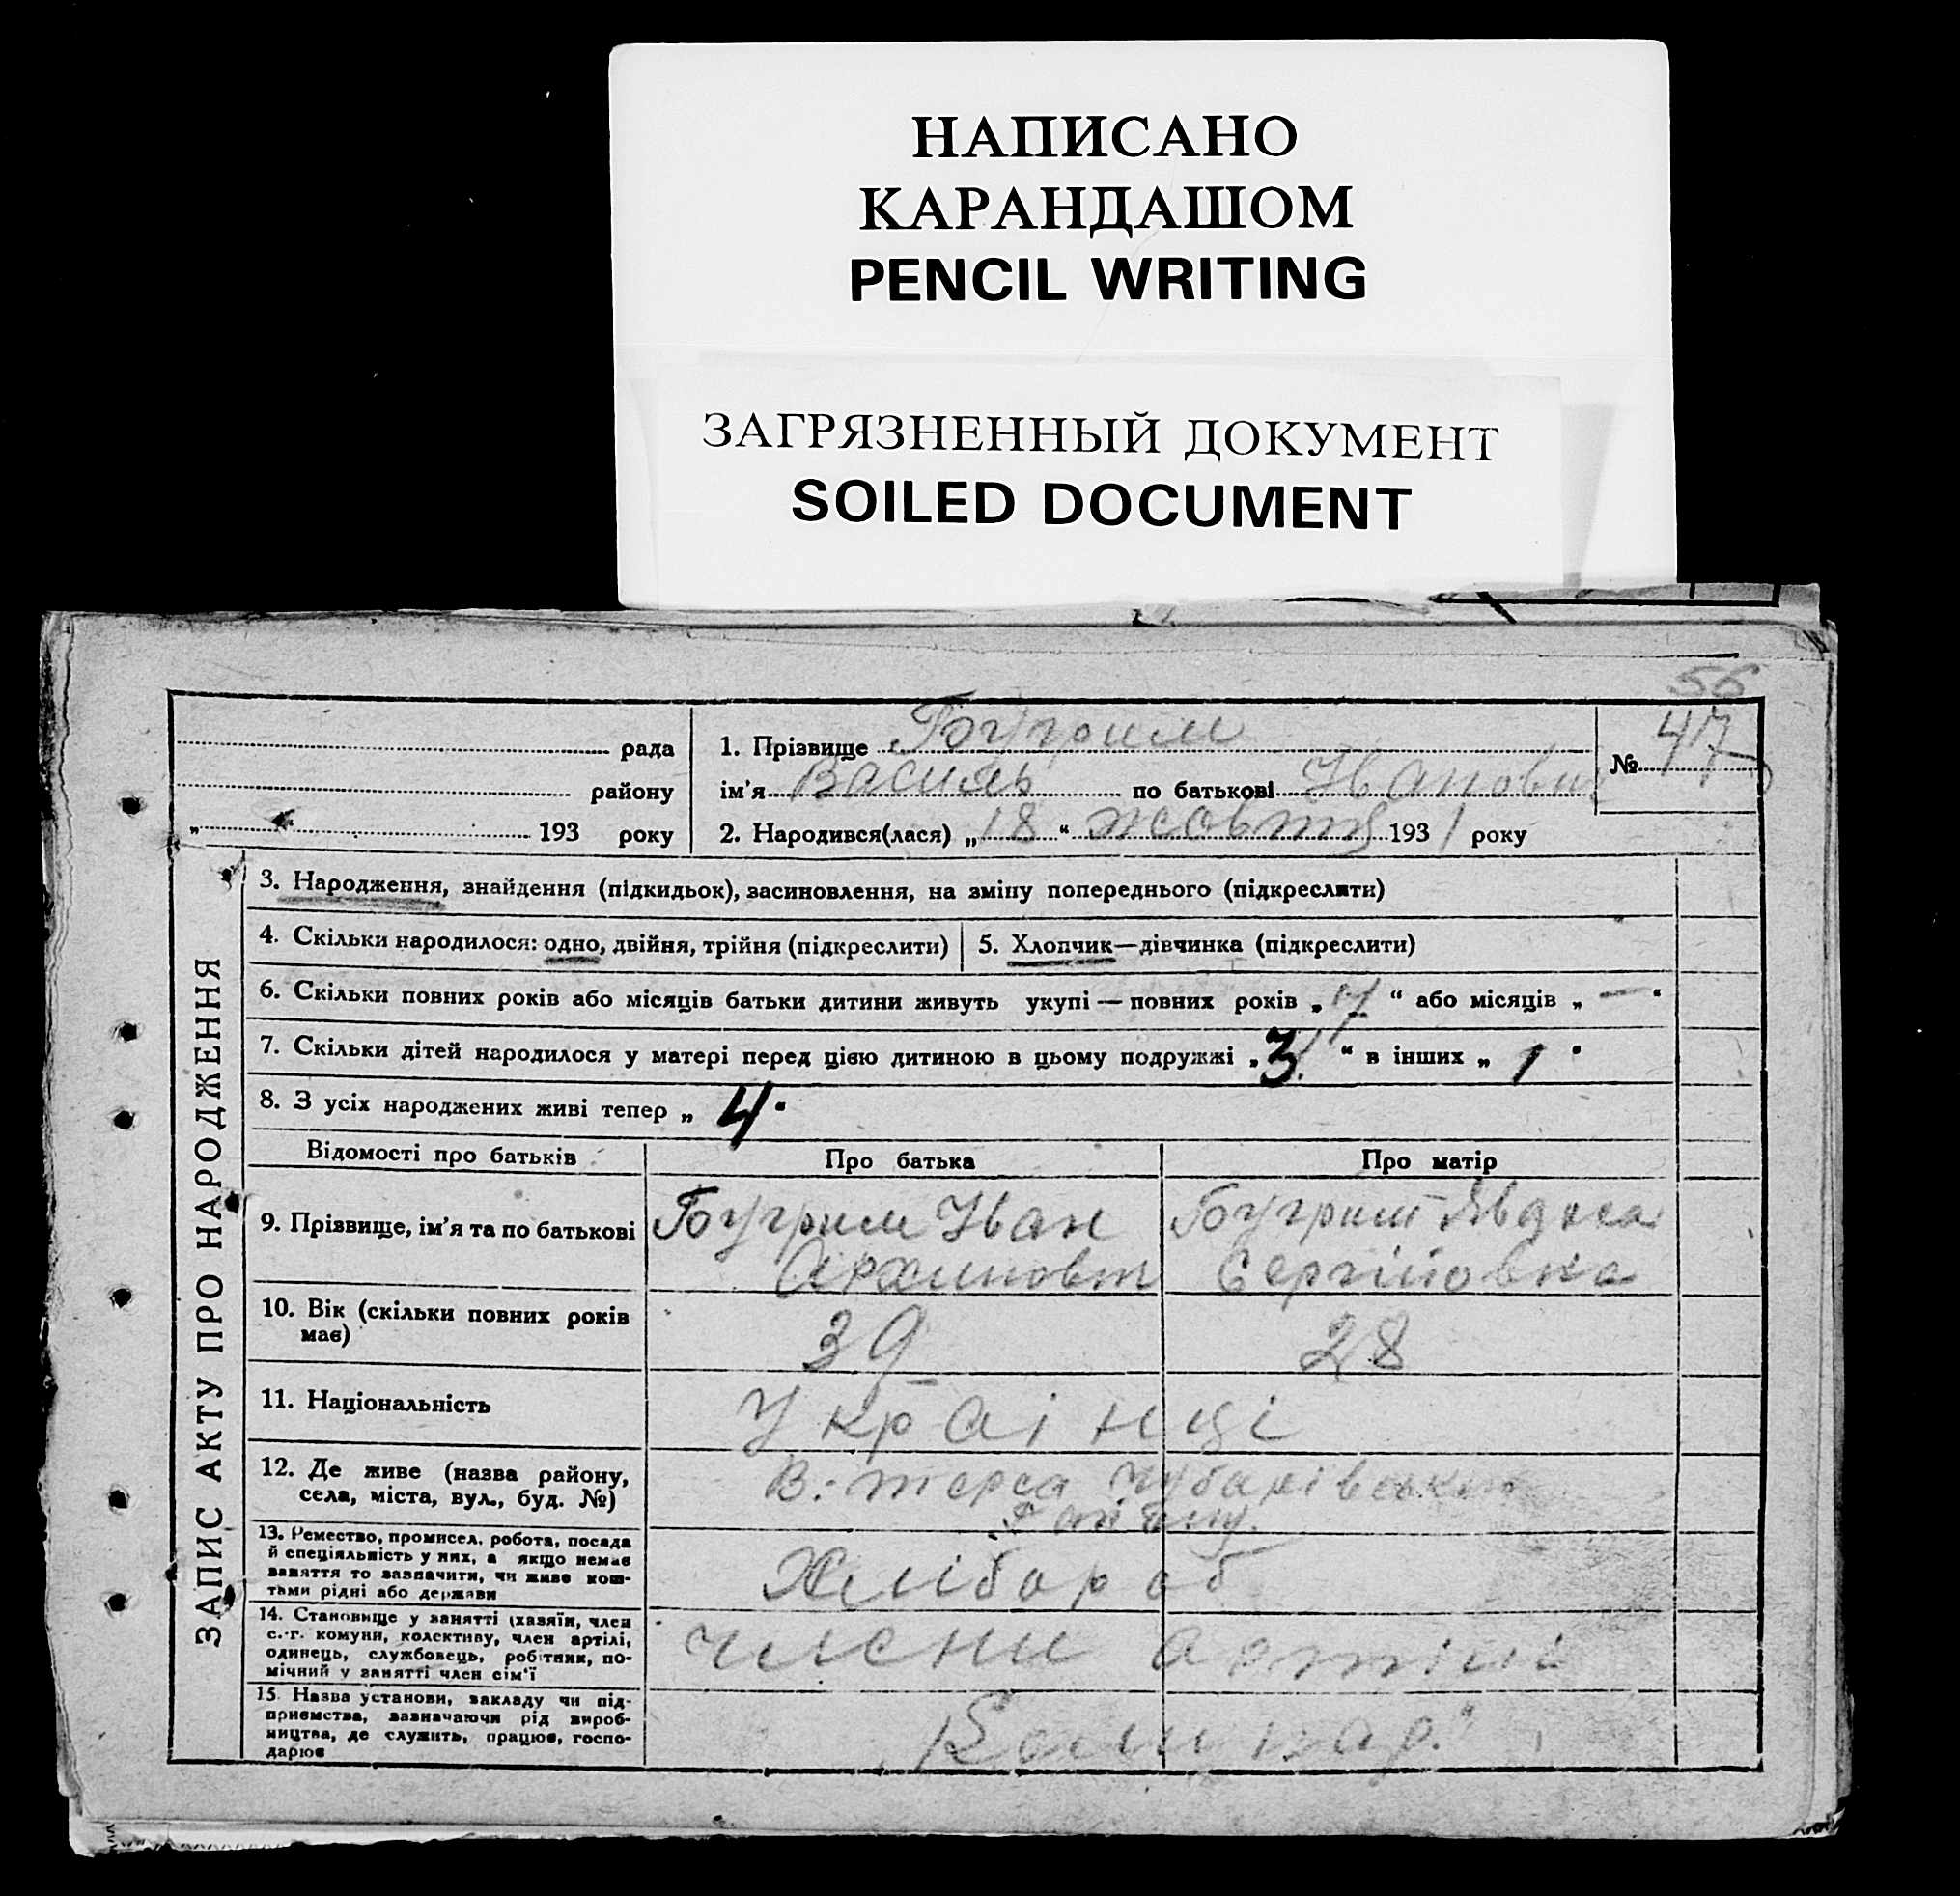 НАПИСАНО
КАРАНДАШОМ
PENCIL WRITING
ЗАГРЯЗНЕННЫЙ ДОКУМЕНТ
SOILED DOCUMENT
56
рада
району
„ 193 року
1. Прізвище Бугрим
ім'я Василь по батькові Іванович
2. Народився(лася) „18“ жовтня 1931 року
№ 47
ЗАПИС АКТУ ПРО НАРОДЖЕННЯ
3. Народження, знайдення (підкидьок), засиновлення, на зміну попереднього (підкреслити)
4. Скільки народилося: одно, двійня, трійня (підкреслити)
5. Хлопчик—дівчинка (підкреслити)
6. Скільки повних років або місяців батьки дитини живуть укупі — повних років „17“ або місяців „—“
7. Скільки дітей народилося у матері перед цією дитиною в цьому подружжі „3“ в інших „1“
8. З усіх народжених живі тепер „4“
Відомості про батьків
Про батька
Про матір
9. Прізвище, ім'я та по батькові
Бугрим Іван
Архиповт
Бугрим Явдоха
Сергійовна
10. Вік (скільки повних років
має)
39
28
11. Національність
Украінці
12. Де живе (назва району,
села, міста, вул., буд. №)
В.-терса
району.
13. Ремество, промисел, робота, посада
й спеціяльність у них, а якщо немає
заняття то зазначити, чи живе кош-
тами рідні або держави
Хлібороб
14. Становище у занятті (хазяїн, член
с.-г. комуни, колективу, член артілі,
одинець, службовець, робітник, по-
мічний у занятті член сім'ї
члени артілі
15. Назва установи, закладу чи під-
приємства, зазначаючи рід вироб-
ництва, де служить, працює, госпо-
дарює